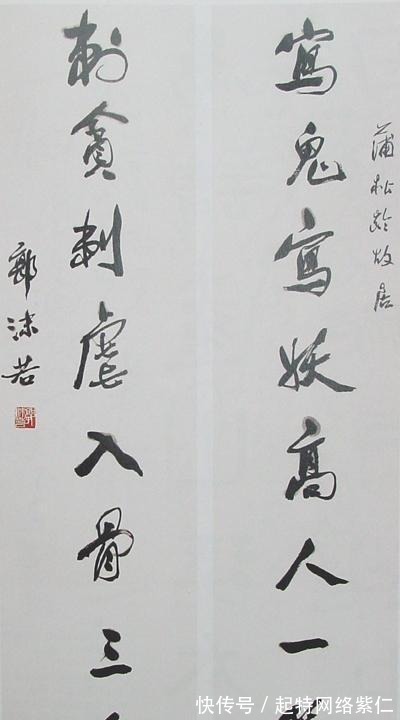 蒲松齡故居
寫鬼寫妖高人一
刺貪刺虐入骨三
郭沫若
快传号 / 起特网络紫仁